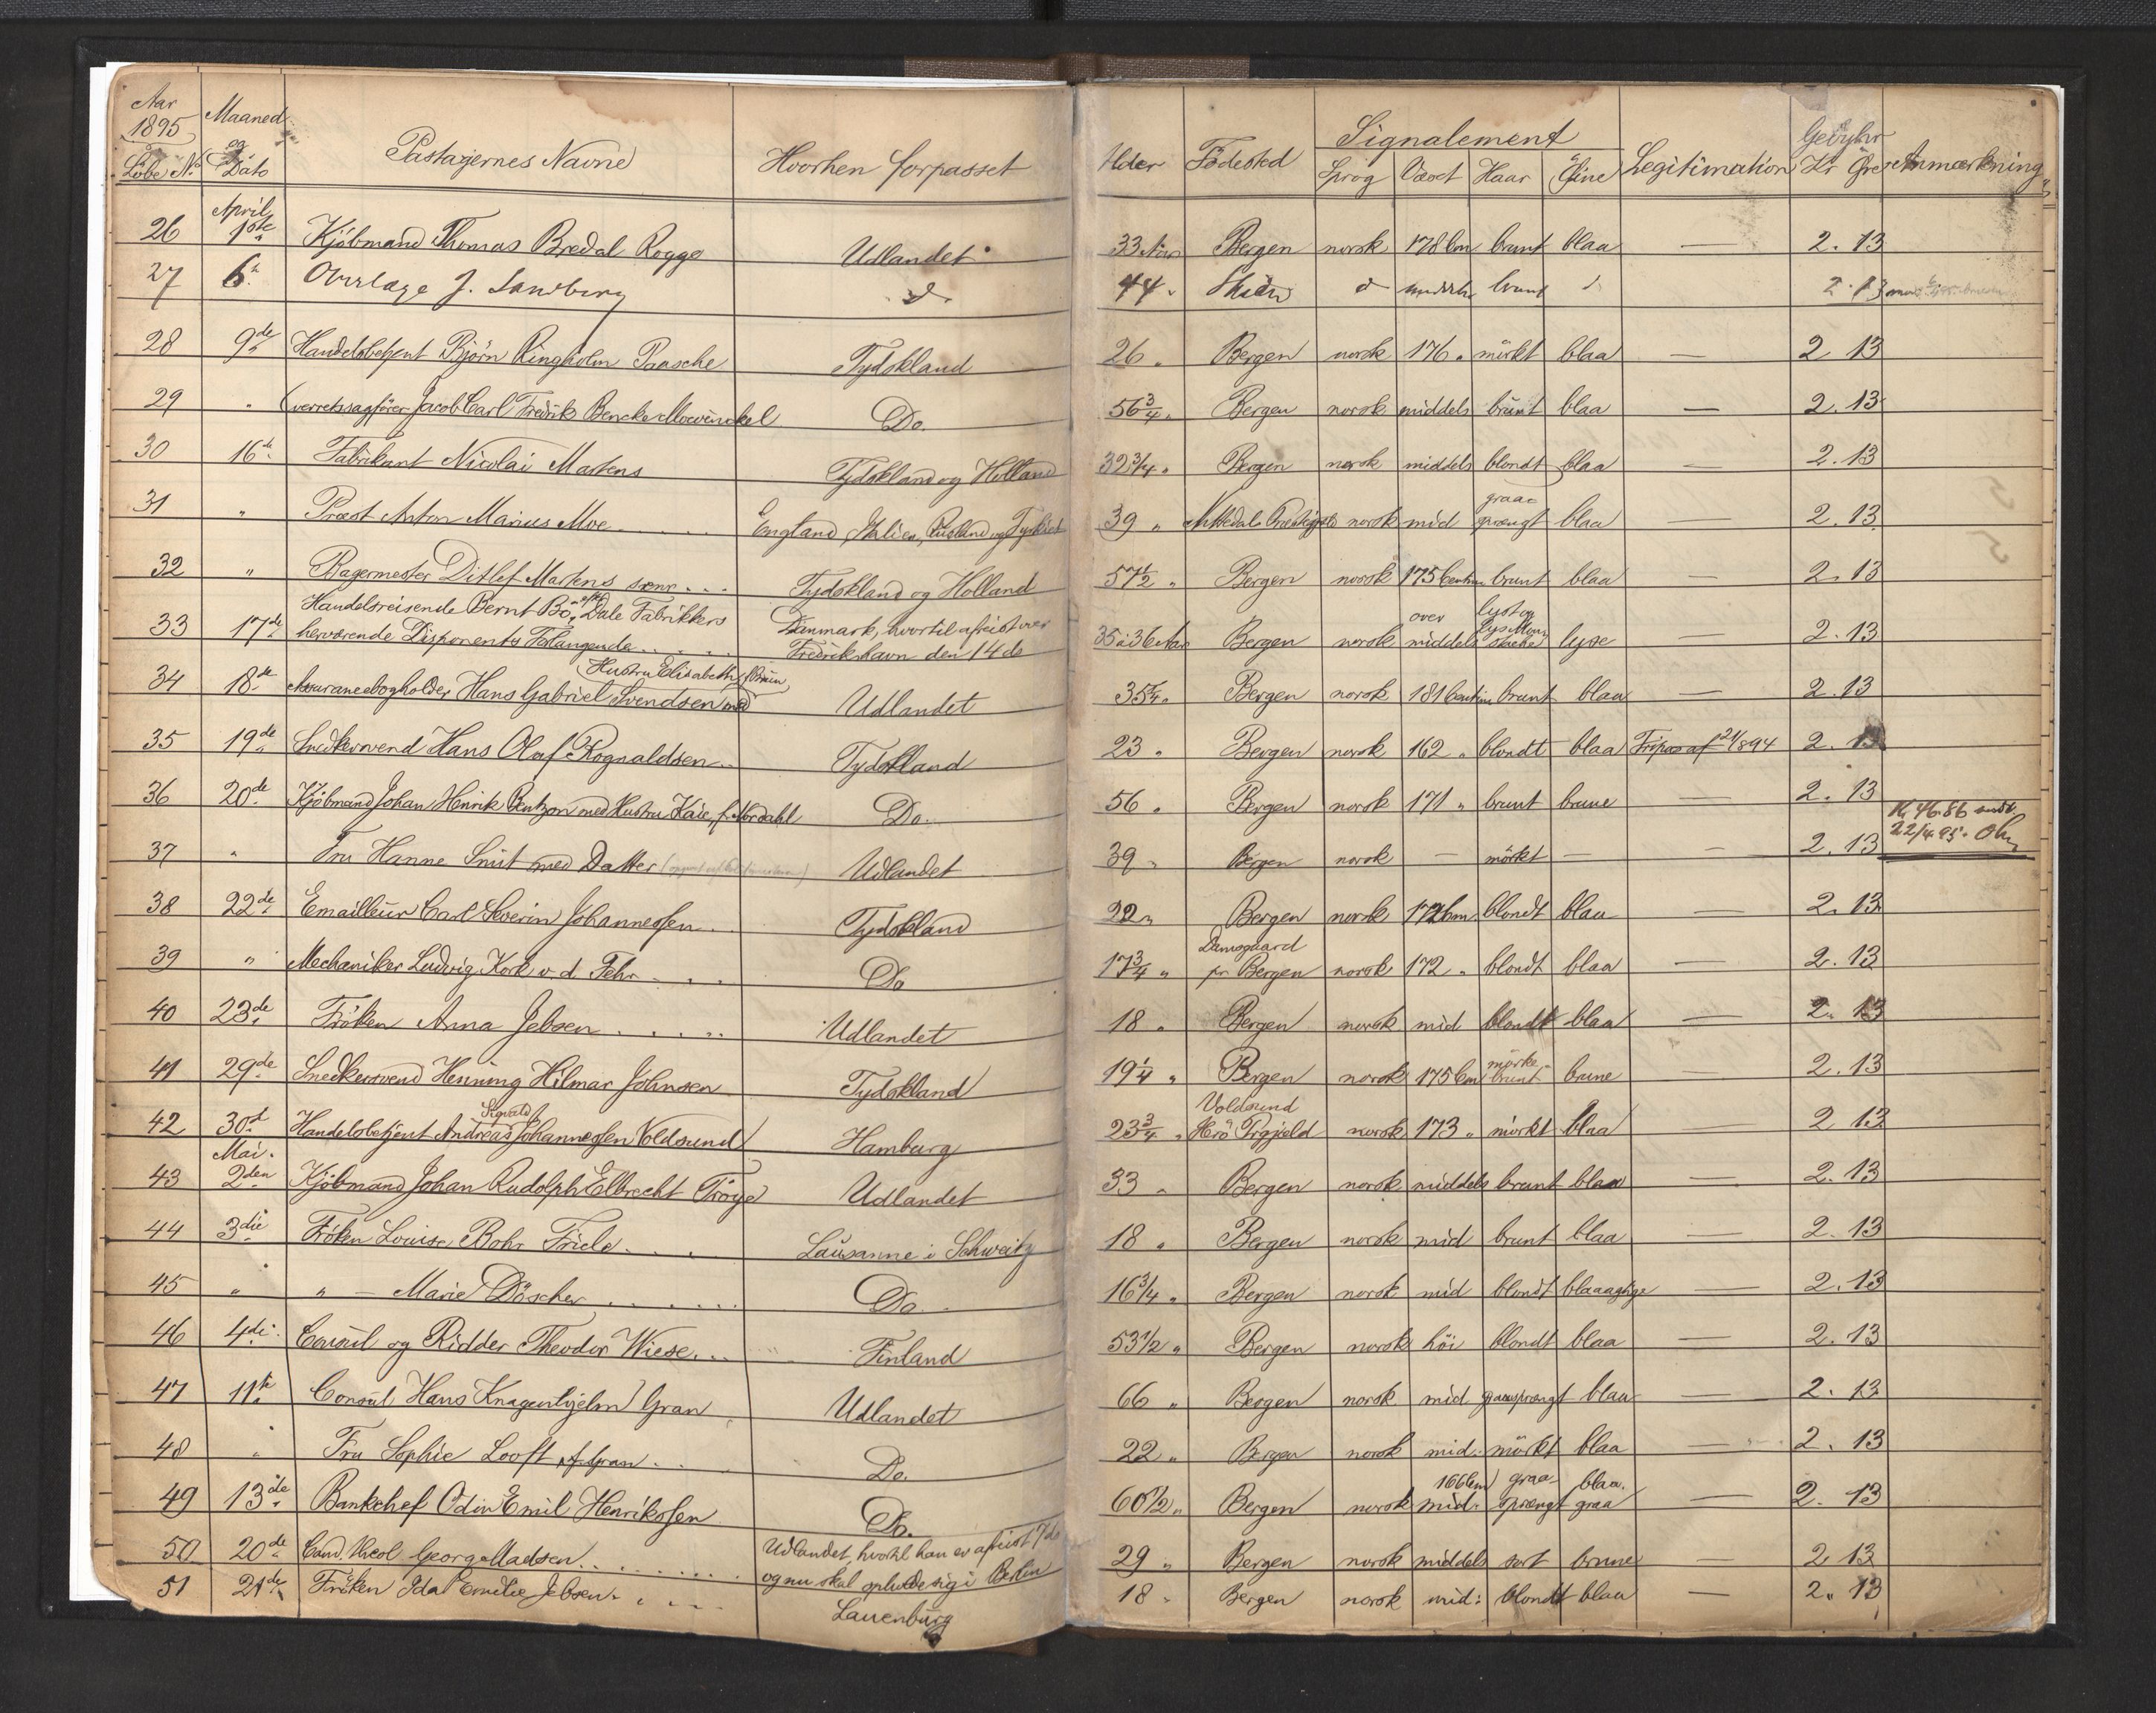 Aar 1895 Maaned og Dato
Löbe No. Passagernes Navne Hvorhen forpasset Alder Födested Signalement Sprog Væxt Haar Öine Legitimation Gebyhr Kr Øre Anmærkning
April
26 1ste Kjöbmand Thomas Bredal Rogge Udlandet 33 Aar Bergen norsk 178 Cm brunt blaa — 2. 13
27 6te Overlæge J. Sandberg do. 44 " Skien d middels brunt d 2. 13
28 9de Handelsbetjent Björn Ringholm Paasche Tydskland 26 " Bergen norsk 176 " mörkt blaa — 2 13
29 " Overretssagförer Jacob Carl Fredrik Bencke Mowinckel Do. 56 3/4 " Bergen norsk middels brunt blaa — 2. 13
30 16de Fabrikant Nicolai Martens Tydskland og Holland 32 3/4 " Bergen norsk middels blondt blaa — 2. 13
31 " Præst Anton Marius Moe England, Italien, Rusland og Tyrkiet 39 " Præstegjeld norsk mid graasprængt blaa — 2. 13
32 " Bagermester Ditlef Martens senr. Tydskland og Holland 57 1/2 " Bergen norsk 175 Centim brunt blaa — 2. 13
33 17de Handelsreisende Bernt Bö, efter Dale Fabrikkers
herværende Disponents Forlangende Danmark, hvortil afreist over
Fredrikshavn den 14de 35 à 36 Aar Bergen norsk over middels lyst og lys lyse — 2. 13
34 18de Assuancebogholder Hans Gabriel Svendsen med Hustru Elisabeth f. Udlandet 35 " Bergen norsk 181 Centim brunt blaa — 2. 13
35 19de Snedkersvend Hans Olaf Rognaldsen Tydskland 23 " Bergen norsk 162 " blondt blaa Fripas af 894 2. 13
36 20de Kjöbmand Johan Henrik Bentzon med Hustru Kaia, f. Nordahl Do. 56 " Bergen norsk 171 " brunt brune — 2. 13
37 " Fru Hanne Smit med Datter Udlandet 39 " Bergen norsk — mörkt — — 2. 13 Kr 46.86 indb. 22/4 95.
38 22de Emailleur Carl Severin Johannessen Tydskland 22 " Bergen norsk 172 Cm blondt blaa — 2. 13
39 " Mechaniker Ludvig Kork v. d. Fehr Do 17 3/4 " Damsgaard pr Bergen norsk 172 " blondt blaa — 2. 13
40 23de Fröken Anna Jebsen Udlandet 18 " Bergen norsk mid blondt blaa — 2. 13
41 29de Snedkersvend Henning Hilmar Johnsen Tydskland 19 1/4 " Bergen norsk 175 Cm mörke brunt brune — 2. 13
42 30te Handelsbetjent Andreas Sigvald Johannessen Voldsund Hamburg 23 3/4 " Voldsund Herö Prgjeld norsk 173 " mörkt blaa — 2 13
Mai.
43 2den Kjöbmand Johan Rudolph Elbrecht Tröye Udlandet 33 " Bergen norsk middels brunt blaa — 2. 13
44 3die Fröken Louise Bohr Friele Lausanne i Schweitz 18 " Bergen norsk mid brunt blaa — 2. 13
45 " " — Marie Döscher Do 16 3/4 " Bergen norsk mid blondt blaaagtige — 2. 13
46 4de Consul og Ridder Theodor Wiese Finland 53 1/2 " Bergen norsk höi blondt blaa — 2. 13
47 11te Consul Hans Knagenhjelm Gran Udlandet 66 " Bergen norsk mid graasprængt blaa — 2. 13
48 " Fru Sophie Looft f. Gran Do. 22 " Bergen norsk mid. mörkt blaa — 2. 13
49 13de Bankchef Odin Emil Henrikssen Do. 60 1/2 " Bergen norsk 166 Cm mid. graasprængt blaa graa — 2. 13
50 20de Cand. theol Georg Madsen Udlandet, hvortil han er afreist 7de
og nu skal opholde sig i Berlin 29 " Bergen norsk middels sort brune — 2 13
51 21de Fröken Ida Emilie Jebsen Lauenburg 18 " Bergen norsk mid: blondt blaa — 2. 13